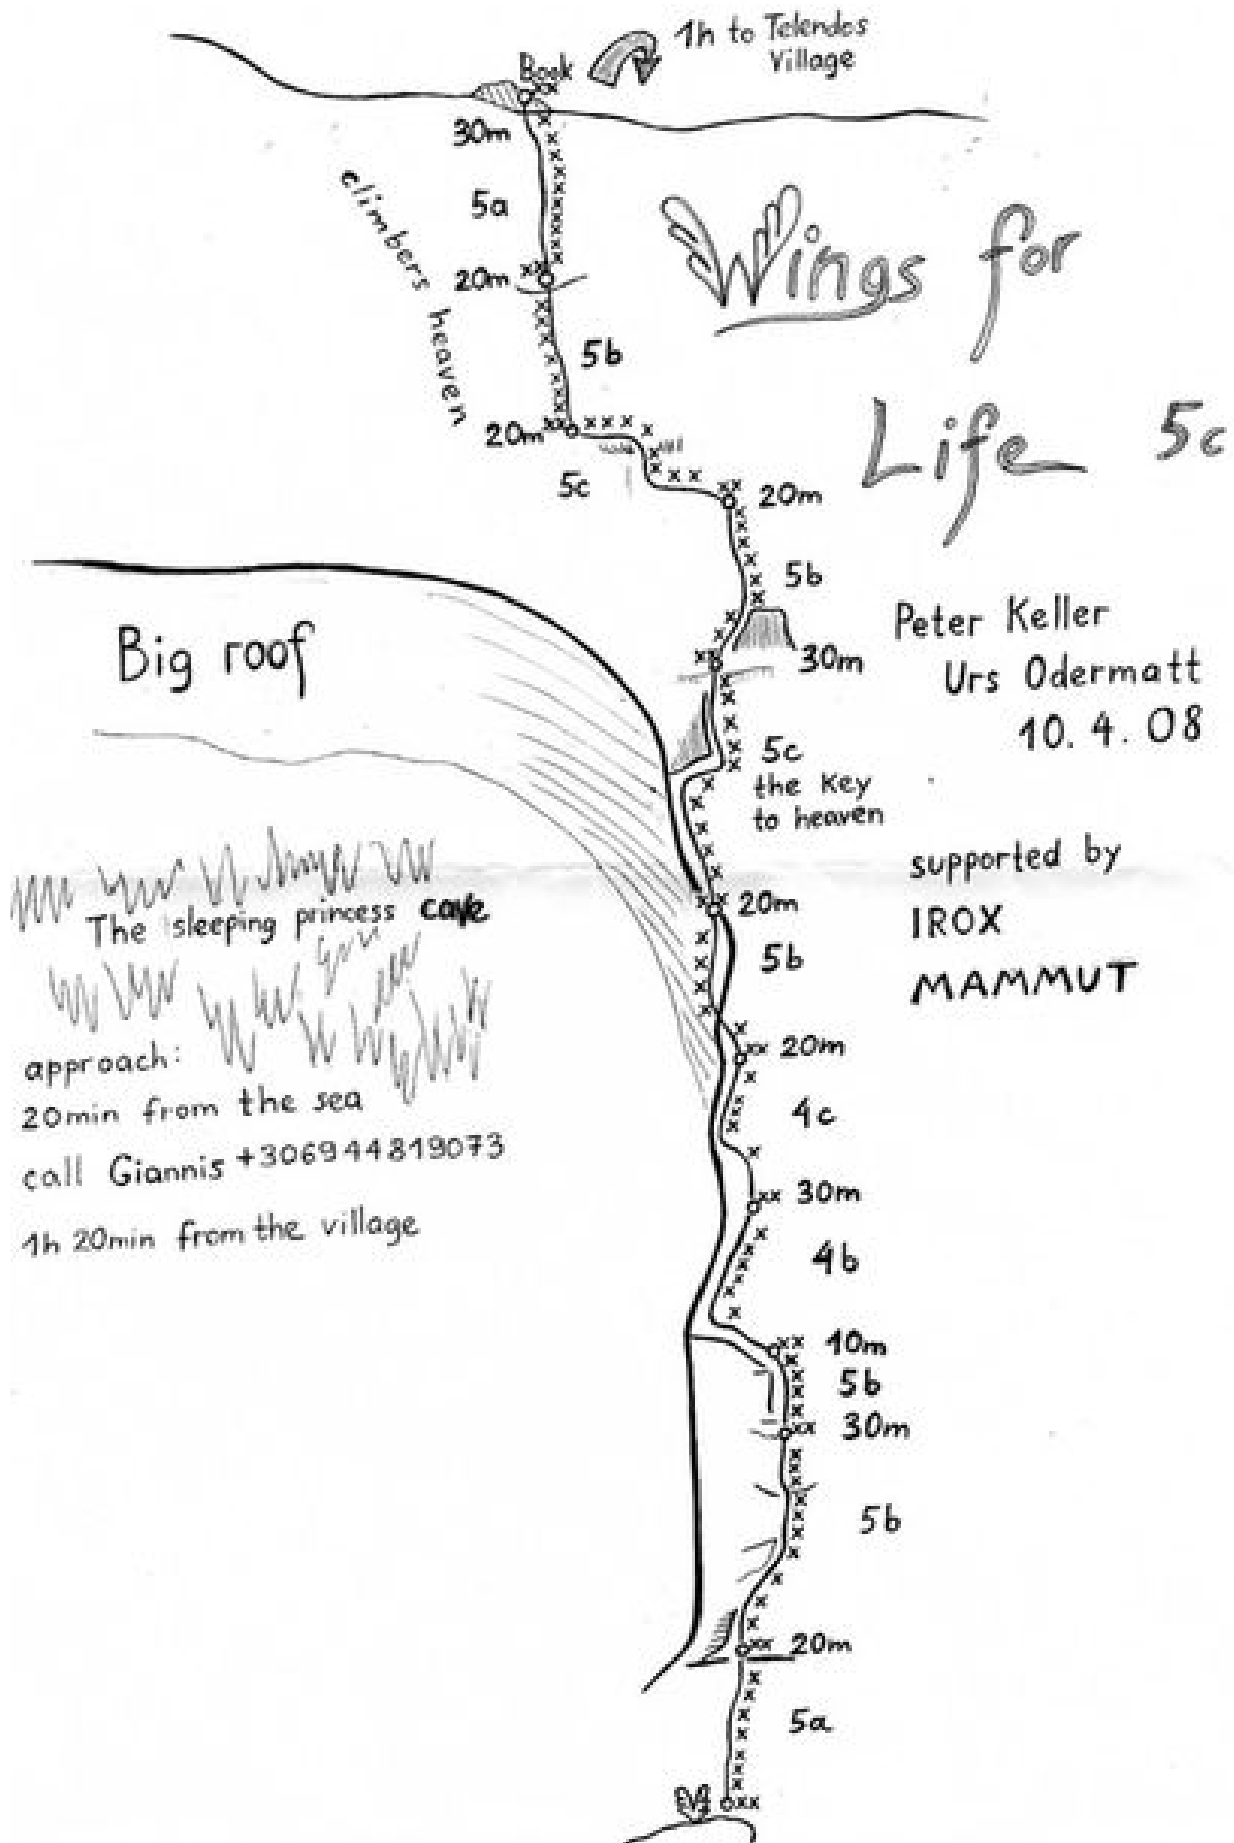 1h to Telendos
Village
Book
30m
5a
climbers heaven
20m
5b
20m
5c
Wings for
Life 5c
20m
5b
30m
Big roof
Peter Keller
Urs Odermatt
10.4.08
5c
the Key
to heaven
supported by
IROX
MAMMUT
20m
The sleeping princess cave
5b
20m
approach:
20min from the sea
call Giannis +306944819073
1h 20min from the village
4c
30m
4b
10m
5b
30m
5b
20m
5a